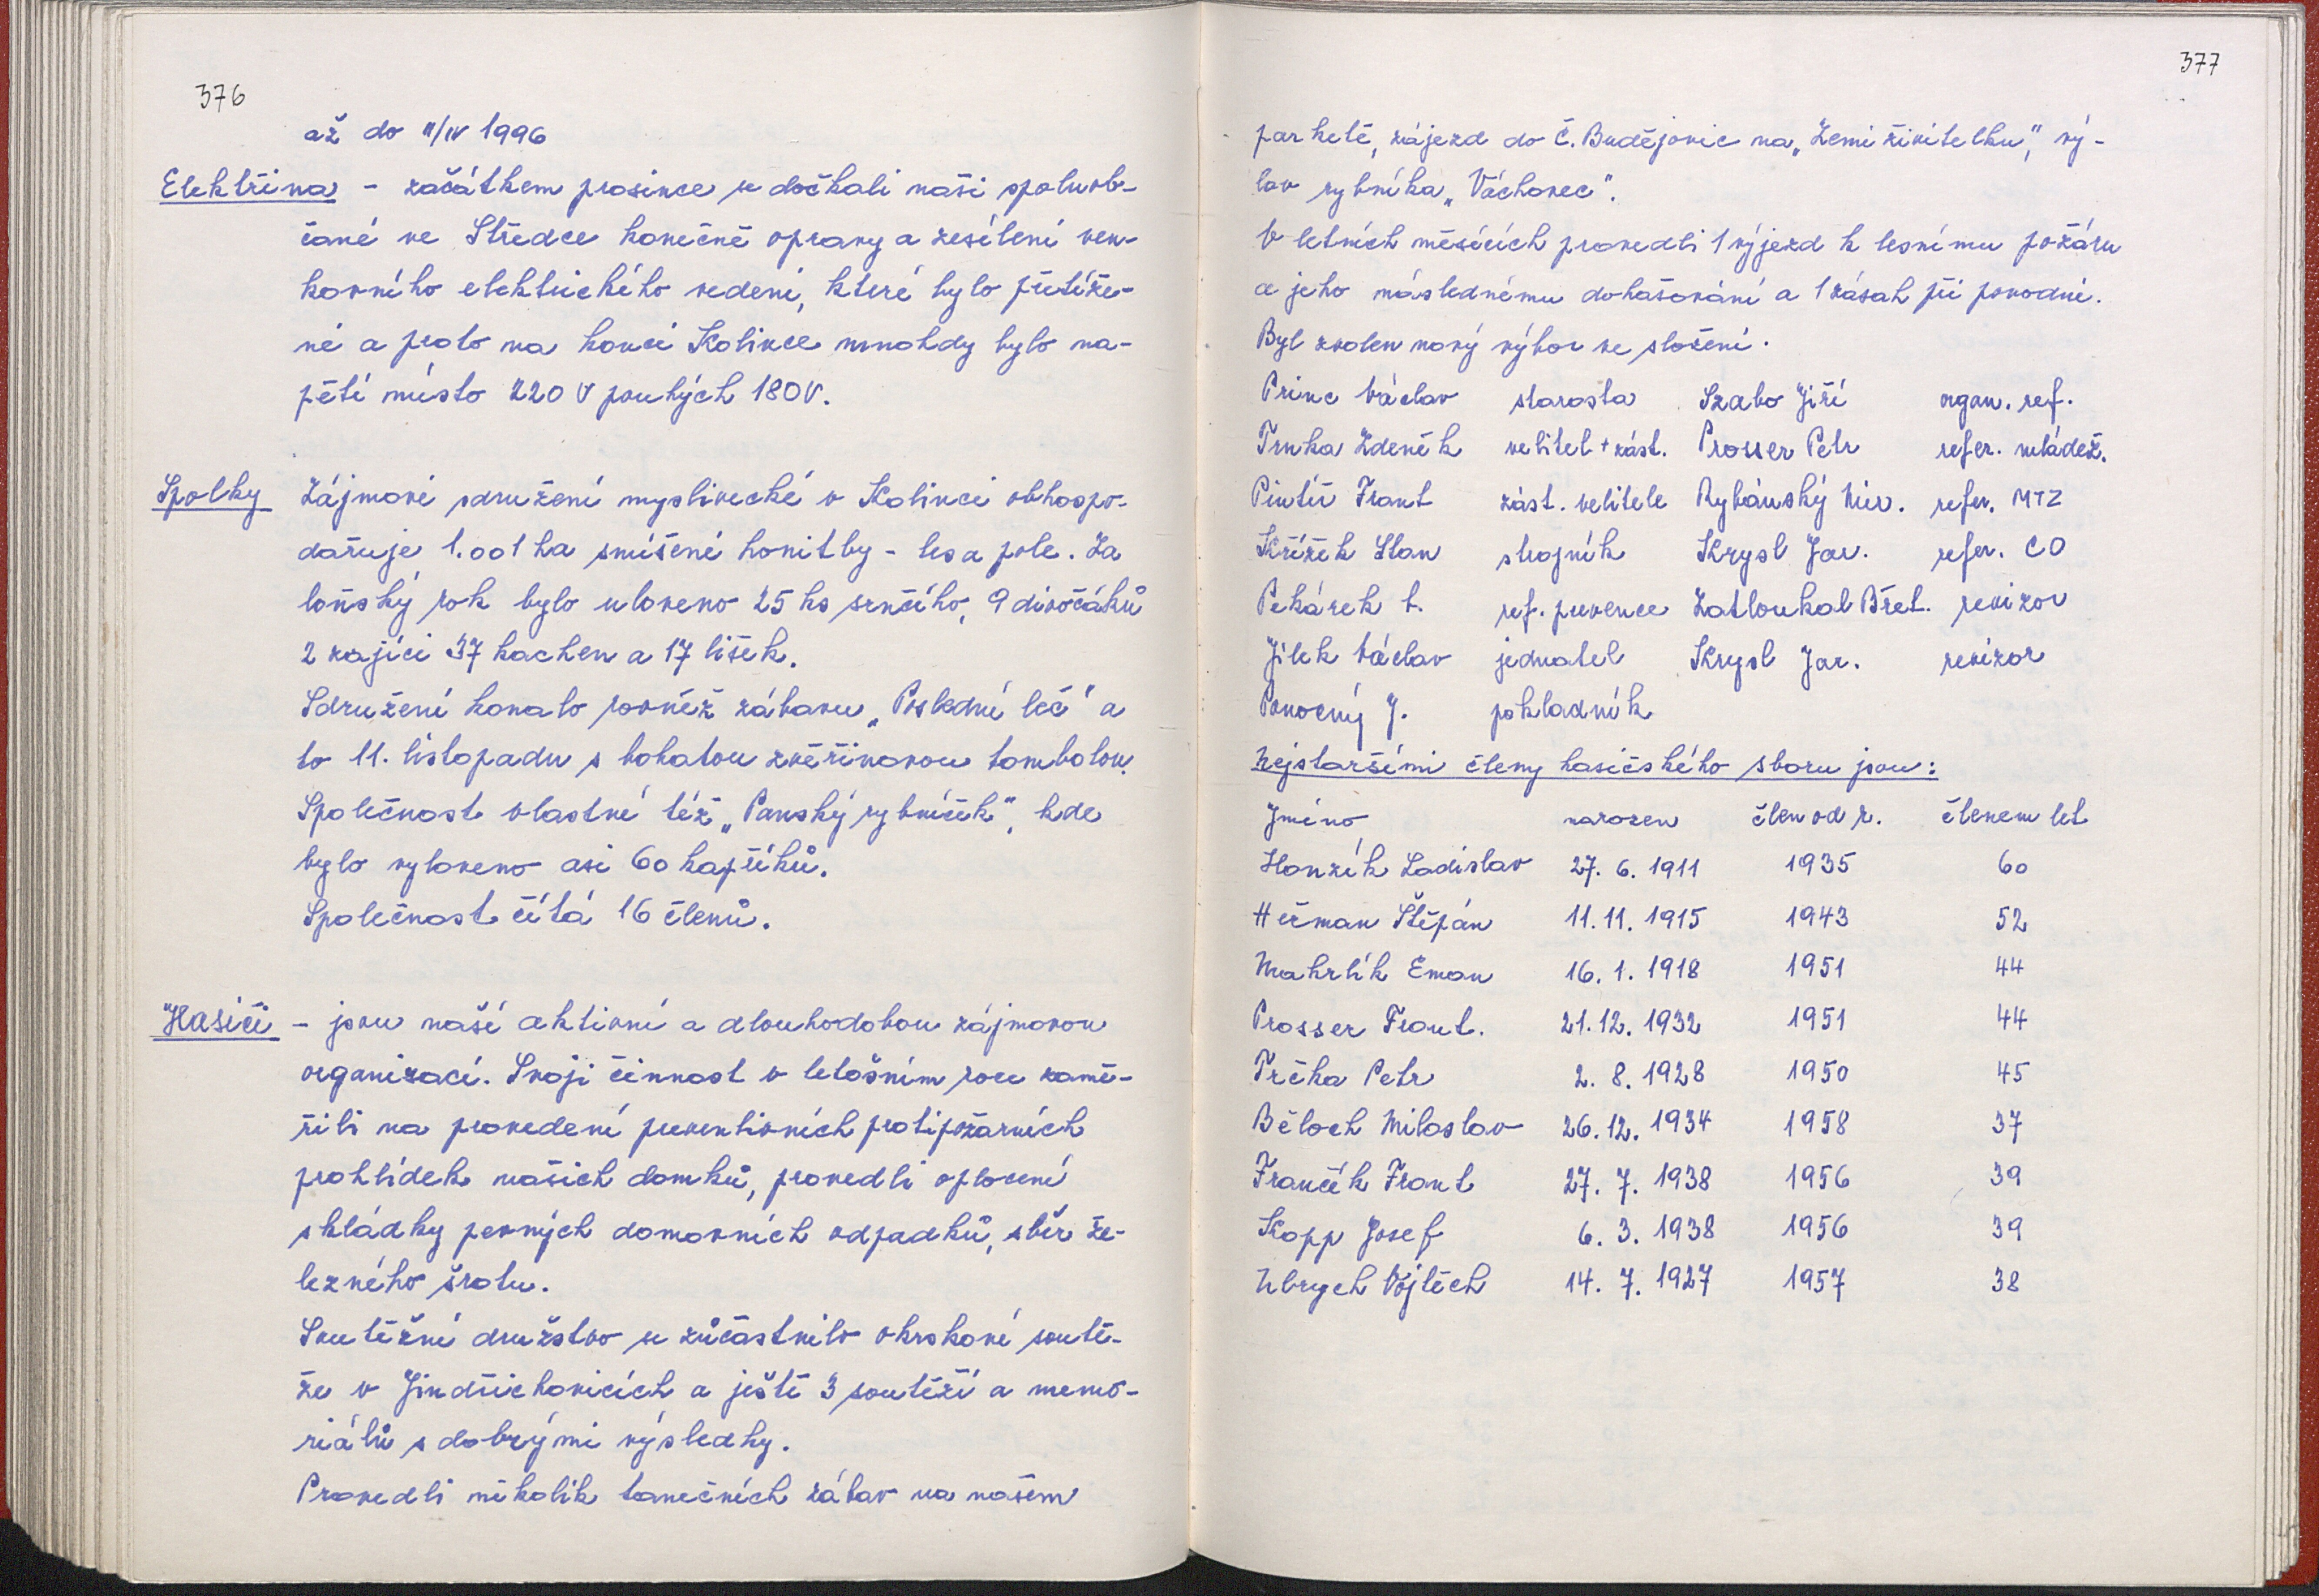 376
až do II/IV 1996
Elektřina - začátkem prosince se dočkali naši spoluob-
čané ve Středce konečně opravy a zesílení ven-
kovního elektrického vedení, které bylo přetíže-
né a proto na konci Kolince mnohdy bylo na-
pětí místo 220 V pouhých 180 V.
Spolky Zájmové sdružení myslivecké v Kolinci obhospo-
dařuje 1.001 ha smíšené honitby - les a pole. Za
loňský rok bylo uloveno 25 ks srnčího, 9 divočáků
2 zajíci 37 kachen a 17 lišek.
Sdružení konalo rovněž zábavu „Poslední leč" a
to 11. listopadu s bohatou zvěřinovou tombolou.
Společnost vlastní též „Panský rybníček", kde
bylo vyloveno asi 60 kapříků.
Společnost čítá 16 členů.
"Hasiči - jsou naší aktivní a dlouhodobou zájmovou
organizací. Svoji činnost v letošním roce zamě-
řili na provedení preventivních protipožárních
prohlídek našich domků, provedli oplocení
skládky pevných domovních odpadků, sběr že-
lezného šrotu.
Soutěžní družstvo se zúčastnilo okrskové soutě-
že v Jindřichovicích a ještě 3 soutěží a memo-
riálů s dobrými výsledky.
Provedli několik tanečních zábav na našem
377
parketě, zájezd do Č. Budějovic na „Zemi živitelku", vý-
lov rybníka „Váchovec".
V letních měsících provedli 1 výjezd k lesnímu požáru
a jeho následnému dohašování a 1 zásah při povodni.
Byl zvolen nový výbor ve složení.
Princ Václav starosta Szabo Jiří organ. ref.
Trnka Zdeněk velitel + zást. Prosser Petr refer. mládež.
Pintíř Frant zást. velitele Rybánský Mir. refer. MTZ
Křížek Stan strojník Krysl Jar. refer. CO
Pekárek V. ref. prevence Zatloukal Břet. revizor
Jílek Václav jednatel Krysl Jar. revizor
Ponocný J. pokladník
Nejstaršími členy hasičského sboru jsou:
Jméno narozen člen od r. členem let
Honzík Ladislav 27. 6. 1911 1935 60
Heřman Štěpán 11. 11. 1915 1943 52
Mahrlík Eman 16. 1. 1918 1951 44
Prosser Frant. 21. 12. 1932 1951 44
Trčka Petr 2. 8. 1928 1950 45
Běloch Miloslav 26. 12. 1934 1958 37
Frančík Frant 27. 7. 1938 1956 39
Kopp Josef 6. 3. 1938 1956 39
Ubrych Vojtěch 14. 7. 1927 1957 38